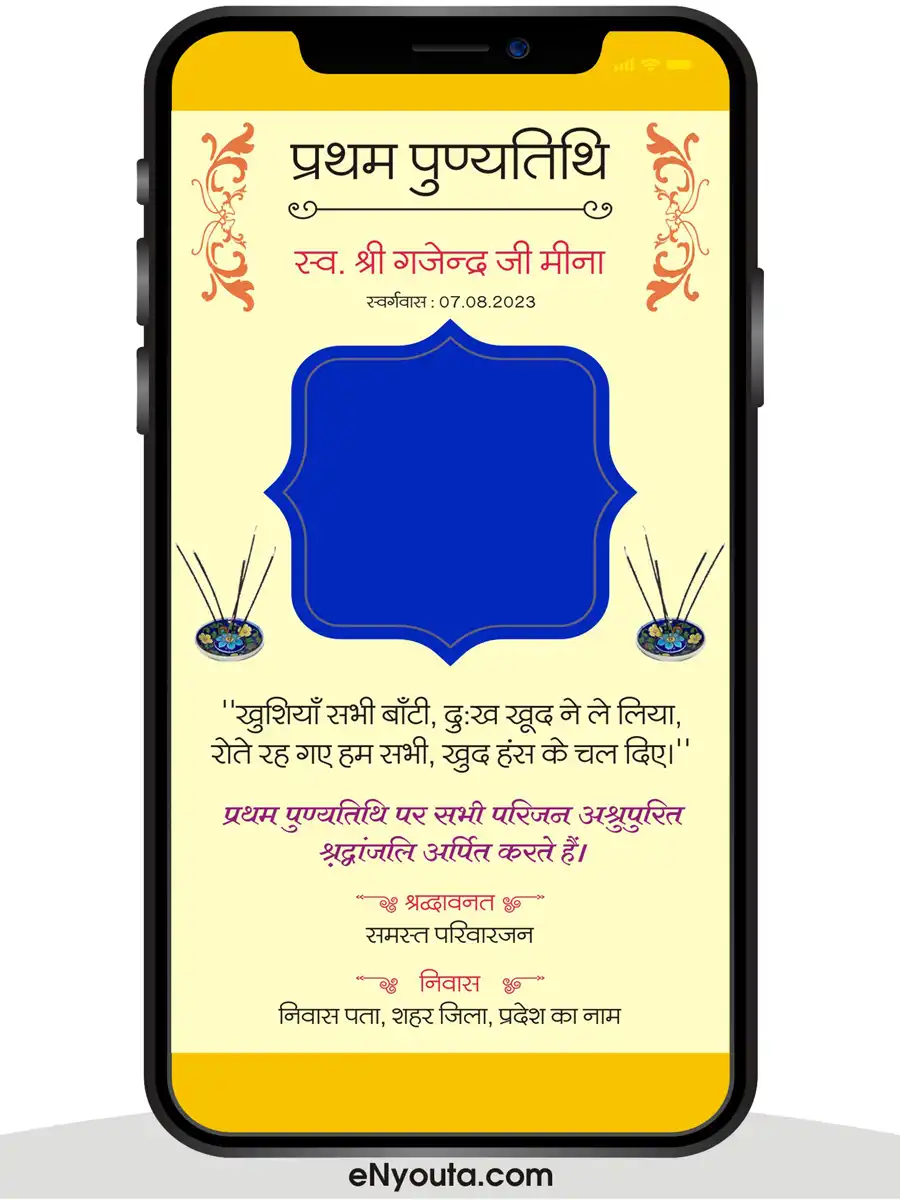 प्रथम पुण्यतिथि
स्व. श्री गजेन्द्र जी मीना
स्वर्गवास : 07.08.2023
"खुशियाँ सभी बाँटी, दुःख खूद ने ले लिया,
रोते रह गए हम सभी, खुद हंस के चल दिए।"
प्रथम पुण्यतिथि पर सभी परिजन अश्रुपुरित
श्रद्धांजलि अर्पित करते हैं।
श्रद्धावनत
समस्त परिवारजन
निवास
निवास पता, शहर जिला, प्रदेश का नाम
eNyouta.com